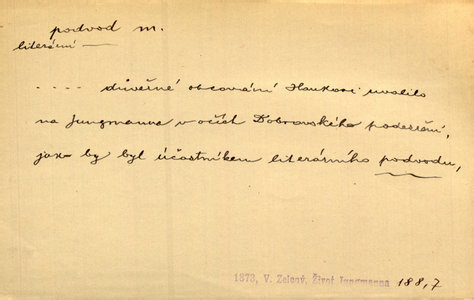 podvod m.
literární —
.... důvěrné obcování Hankovi uvalilo
na Jungmanna v očích Dobrovského podezření,
jako by byl účastníkem literárního podvodu,
1873, V. Zelený, Život Jungmanna 188,7